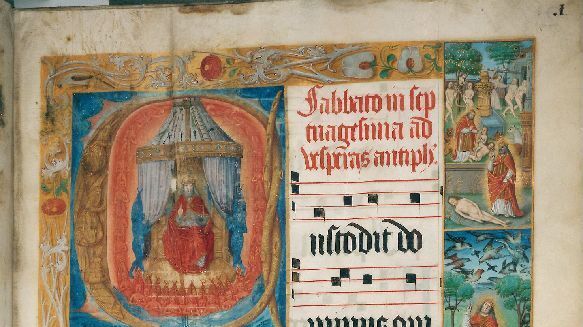 .1.
Sabbato in sep
tuagesima ad
vesperas antiph.
C
ustodit do
minus om